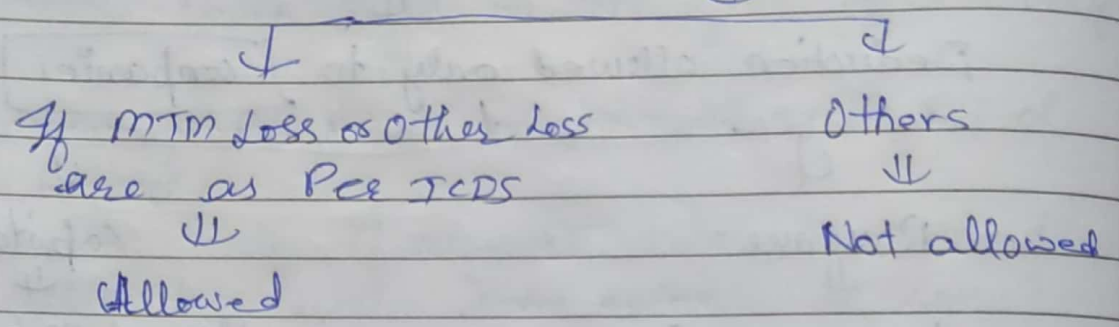 If MTM Loss or Other Loss
are as Per ICDS
Allowed
Others
Not allowed